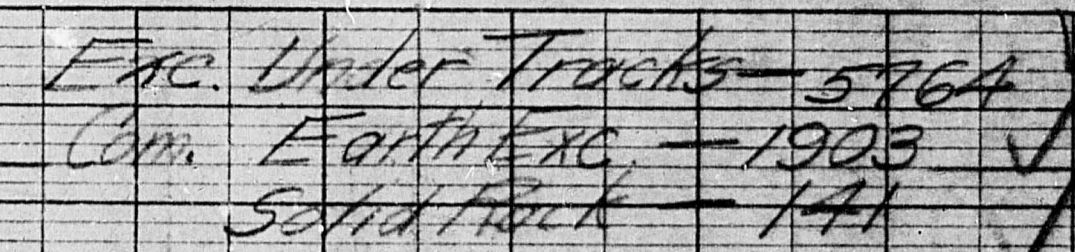 Exc. Under Tracks — 5764
Com. Earth Exc. — 1903 ✓
Solid Rock — 141